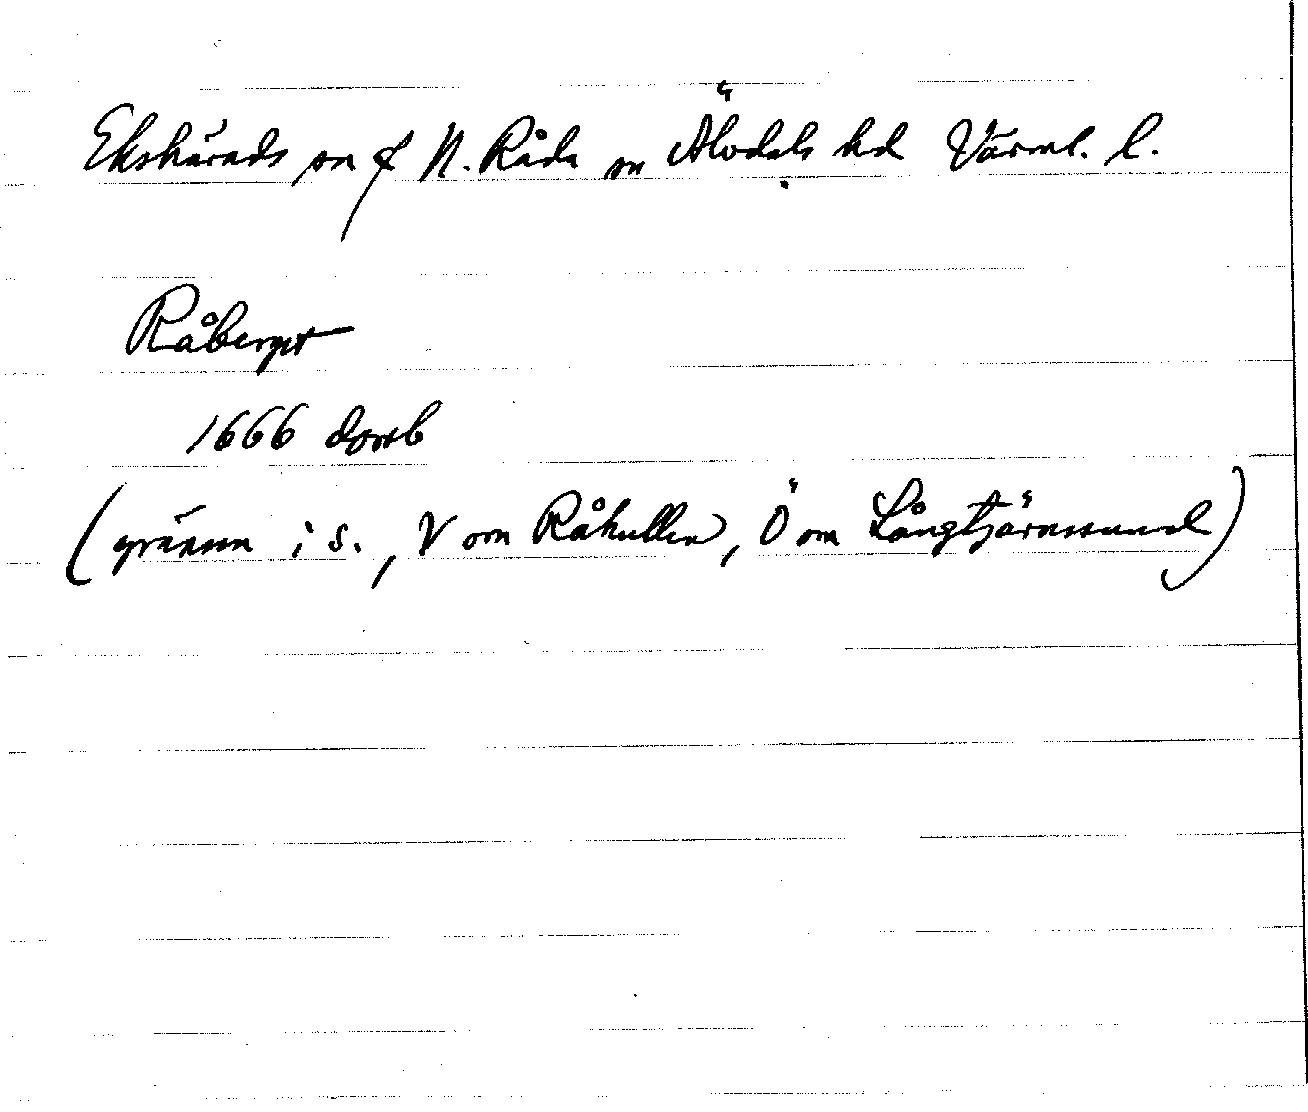 Ekshärads sn o N. Råda sn Älvdals hd Värml. l.
Råberget
1666 domb
(gränsen i s., V om Råkullen, Ö om Långtjärnssund)